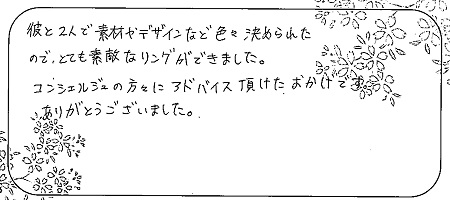 彼と2人で素材やデザインなど色々決められた
ので、とても素敵なリングができました。
コンシェルジュの方々にアドバイス頂けたおかげです
ありがとうございました。